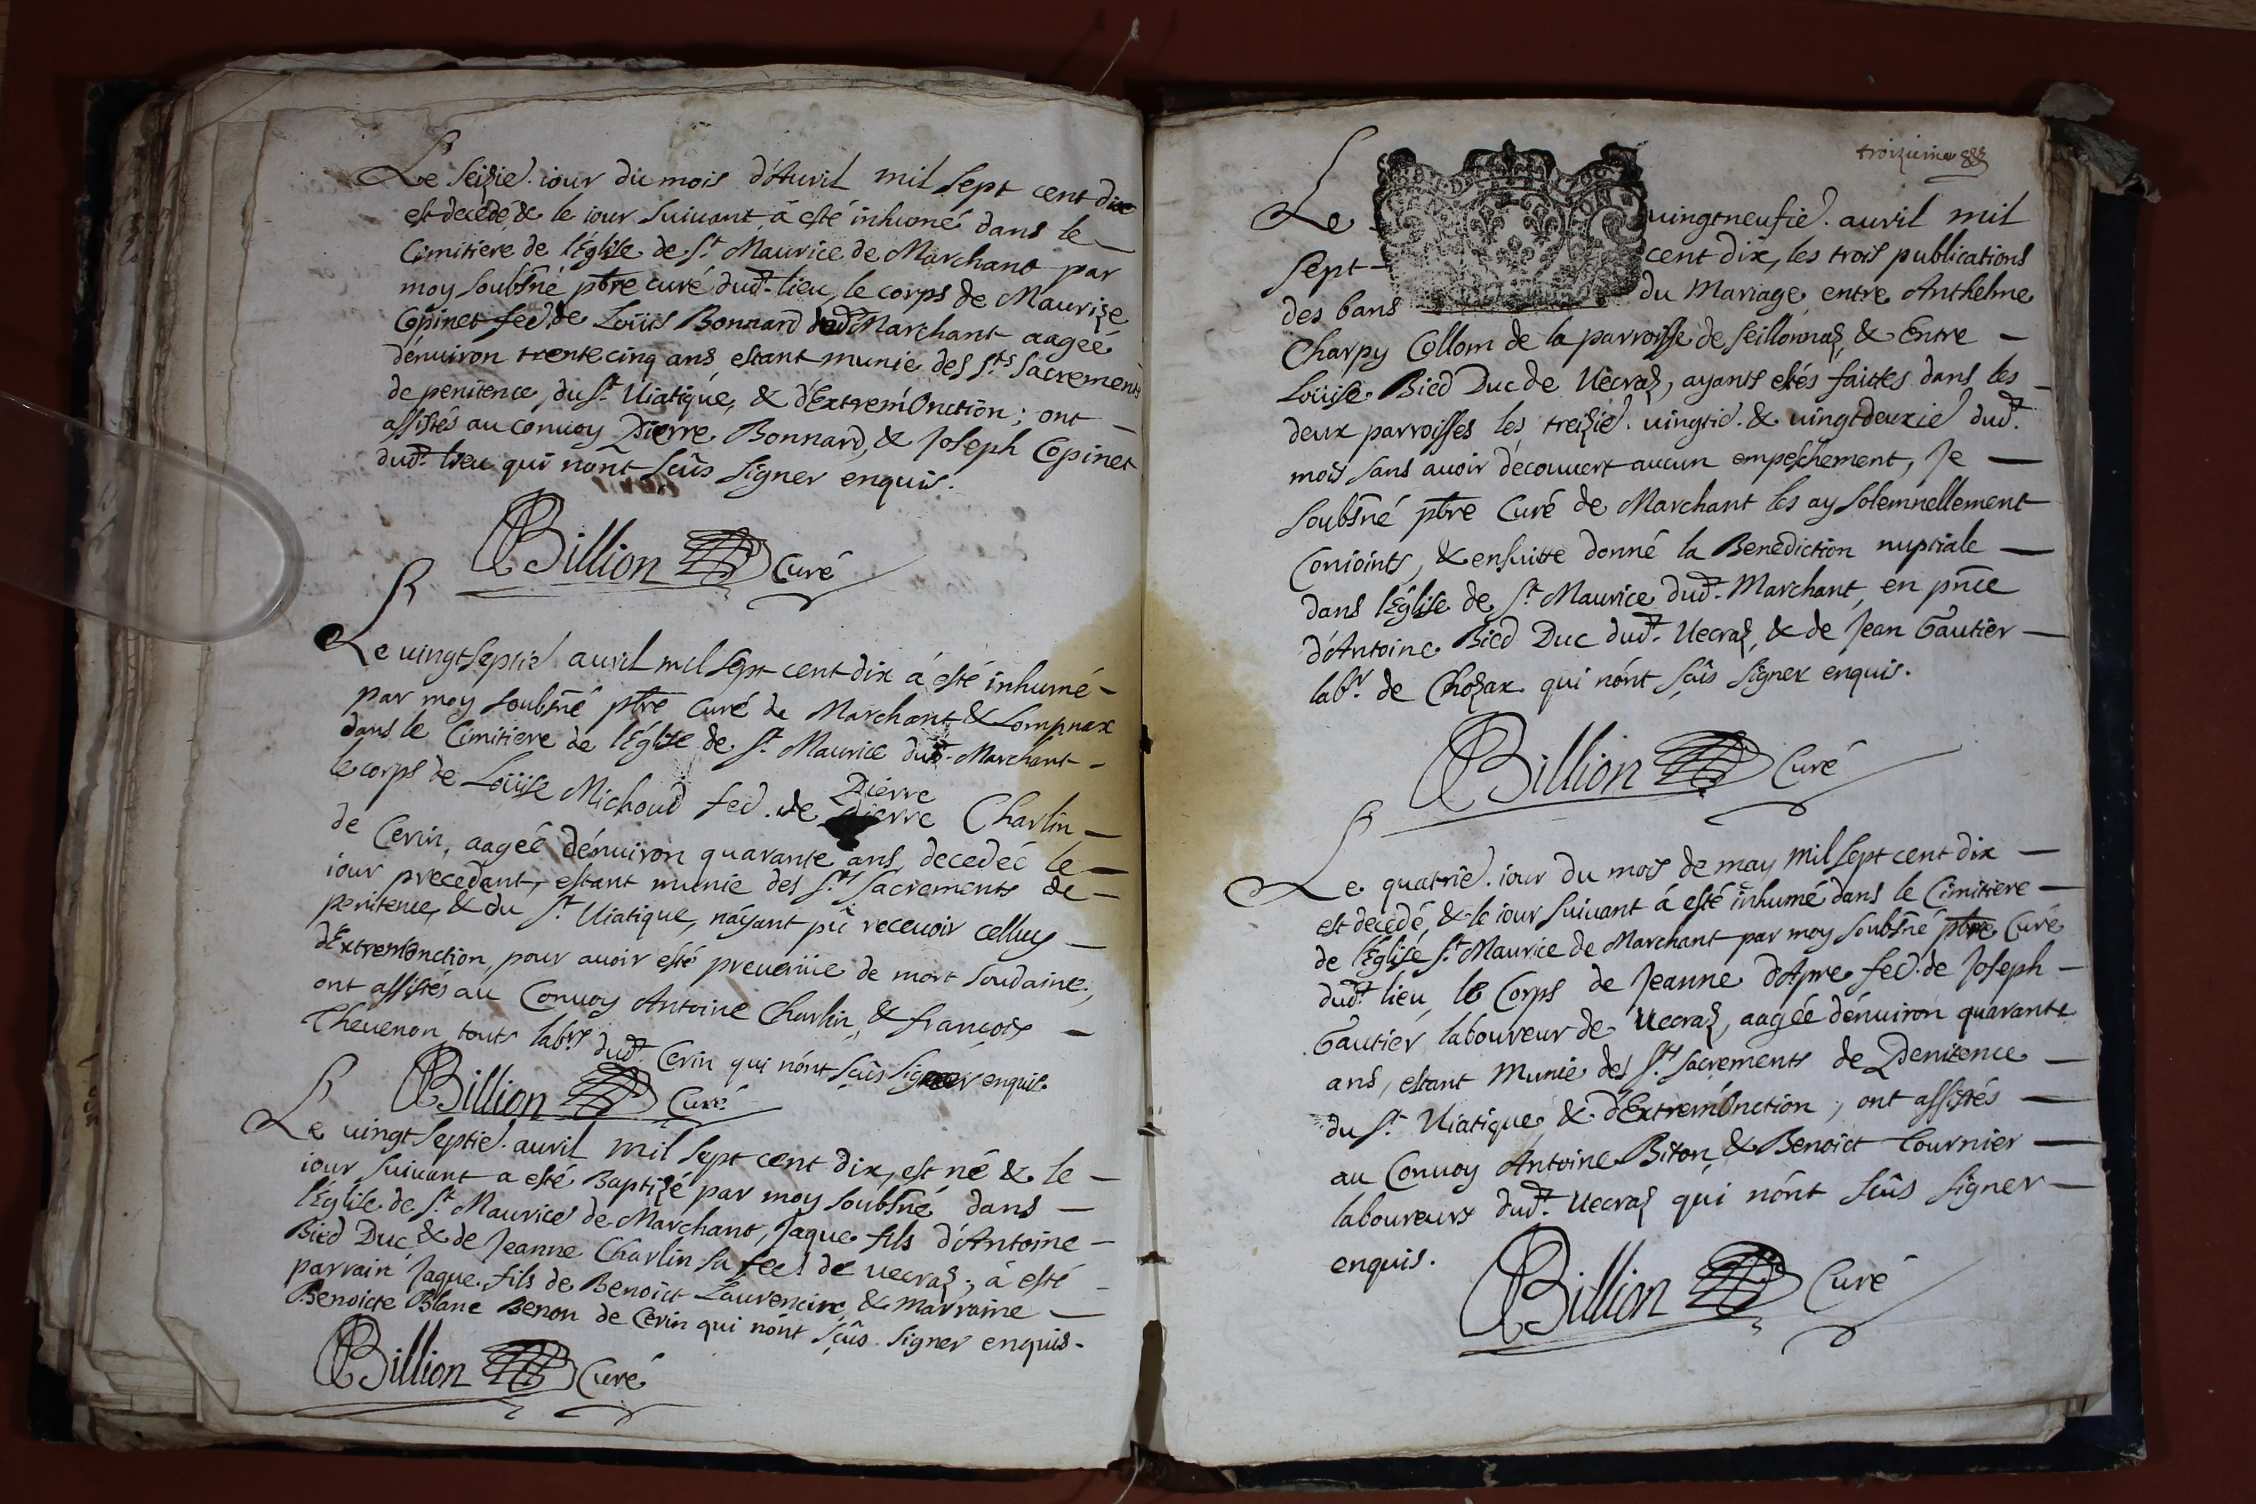 Le seizie. iour du mois d'Auril mil sept cent dix
est decedé, & le iour suiuant á esté inhumé dans le
Cimitiere de l'Église de St Maurice de Marchant par
moy soubsné pbre curé dudt lieu, le corps de Maurize
Copinet fed. de Loüis Bonnard dudt Marchant aagée
d'enuiron trente cinq ans estant munie des Sts Sacrements
de penitence, du St Uiatique, & d'Extrem'Onction; ont
assistés au conuoy Pierre Bonnard, & Joseph Copinet
dudt lieu qui n'ont sçûs signer enquis.
Billion Curé
Le uingtseptie. auril mil sept cent dix á esté inhumé
par moy soubsné pbre Curé de Marchant & Lompnax
dans le Cimitiere de l'Église de St Maurice dudt Marchant
le corps de Loüise Michoud fed. de Pierre Charlin
de Cerin, aagée d'enuiron quarante ans, decedée le
iour precedant, estant munie des Sts Sacrements de
penitence, & du St Uiatique, n'ayant pû receuoir celluy
d'Extrem'Onction, pour auoir esté preuenüe de mort soudaine;
ont assistés au Conuoy Antoine Charlin, & François
Theuenon touts labrs dudt Cerin qui n'ont sçûs signer enquis.
Billion Curé
Le uingtseptie. auril mil sept cent dix, est né & le
iour suiuant a esté Baptizé par moy soubsné dans
l'Église de St Maurice de Marchant, Jaque fils d'Antoine
Bied Duc & de Jeanne Charlin sa fed. de Uecraz; á esté
parrain Jaque fils de Benoict Laurencin, & marraine
Benoicte Blanc Benon de Cerin qui n'ont sçûs signer enquis.
Billion Curé
troizieme
Le uingtneufie. auril mil
sept cent dix, les trois publications
des bans du Mariage entre Anthelme
Charpy Collom de la parroisse de Seillonnaz, & Entre
Loüise Bied Duc de Uecraz, ayants estés faittes dans les
deux parroisses les treizie. uingtie. & uingtdeuxie dudt
mois sans auoir découuert aucun empeschement, Je
soubsné pbre Curé de Marchant les ay solemnellement
Conioints, & ensuitte donné la Benediction nuptiale
dans l'Église de St Maurice dudt Marchant, en pnce
d'Antoine Bied Duc dudt Uecraz, & de Jean Gautier
labr de Chozax qui n'ont sçûs signer enquis.
Billion Curé
Le quatrie. iour du mois de may mil sept cent dix
est decedé, & le iour suiuant á esté inhumé dans le Cimitiere
de l'Église St Maurice de Marchant par moy soubsné pbre Curé
dudt lieu, le Corps de Jeanne d'Apre fed. de Joseph
Gautier laboureur de Uecraz, aagée d'enuiron quarante
ans, estant Munie des Sts Sacrements de Penitence
du St Uiatique & d'Extrem'Onction; ont assistés
au Conuoy Antoine Biton, & Benoict Tournier
laboureurs dudt Uecraz qui n'ont sçûs signer
enquis.
Billion Curé